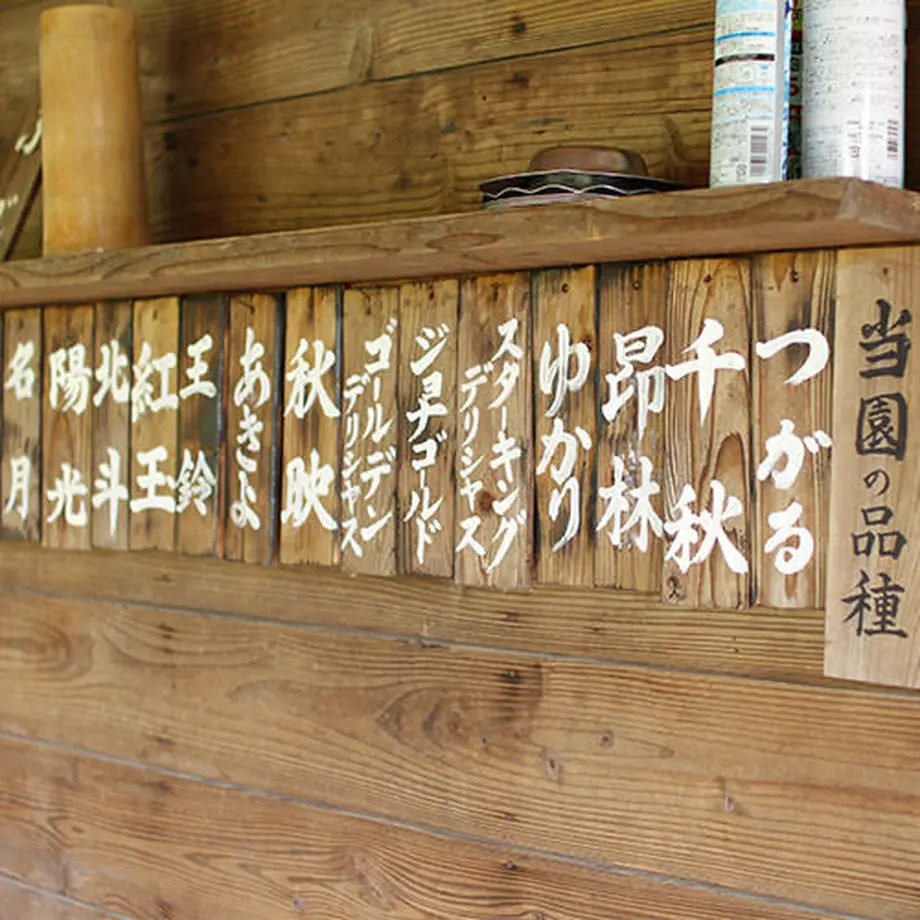 当園の品種
つがる
千秋
昂林
ゆかり
スターキング
デリシャス
ジョナゴールド
ゴールデン
デリシャス
秋映
あきよ
王鈴
紅王
北斗
陽光
名月